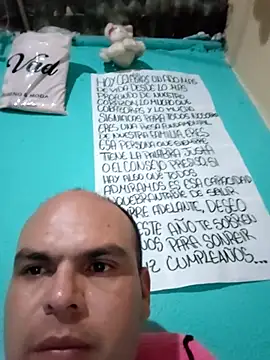 Vüd
HOY CUMPLES UN AÑO MÁS
DE VIDA DESDE LO MAS
PROFUNDO DE NUESTRO
CORAZON LO MUCHO QUE
Y LO MUCHO
SIGNIFICAS PARA TODOS NOSOTROS
ERES UNA PIEZA FUNDAMENTAL
DE NUESTRA FAMILIA, ERES
ESA PERSONA QUE SIEMPRE
TIENE LA PALABRA JUSTA
O EL CONSEJO PRECISO, SI
HAY ALGO QUE TODOS
ADMIRAMOS ES ESA CAPACIDAD
INQUEBRANTABLE DE SALIR
PRE ADELANTE, DESEO
ESTE AÑO TE SOBREN
VOS PARA SONREIR
IZ CUMPLEAÑOS...